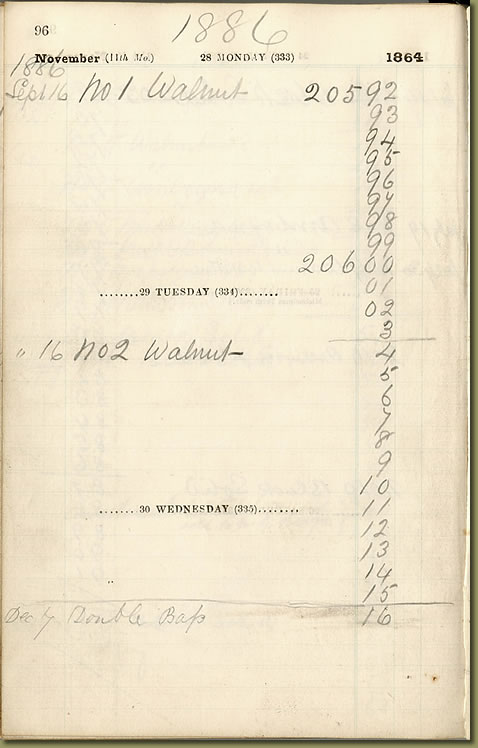 96
1886
November (11th Mo.) 28 MONDAY (333) 1864
1886
Sept 16 No 1 Walnut 205 92
93
94
95
96
97
98
99
206 00
01
........29 TUESDAY (334)........
02
3
" 16 No 2 Walnut 4
5
6
7
8
9
10
.......30 WEDNESDAY (335)........ 11
12
13
14
15
Dec 7 Double Baſs 16